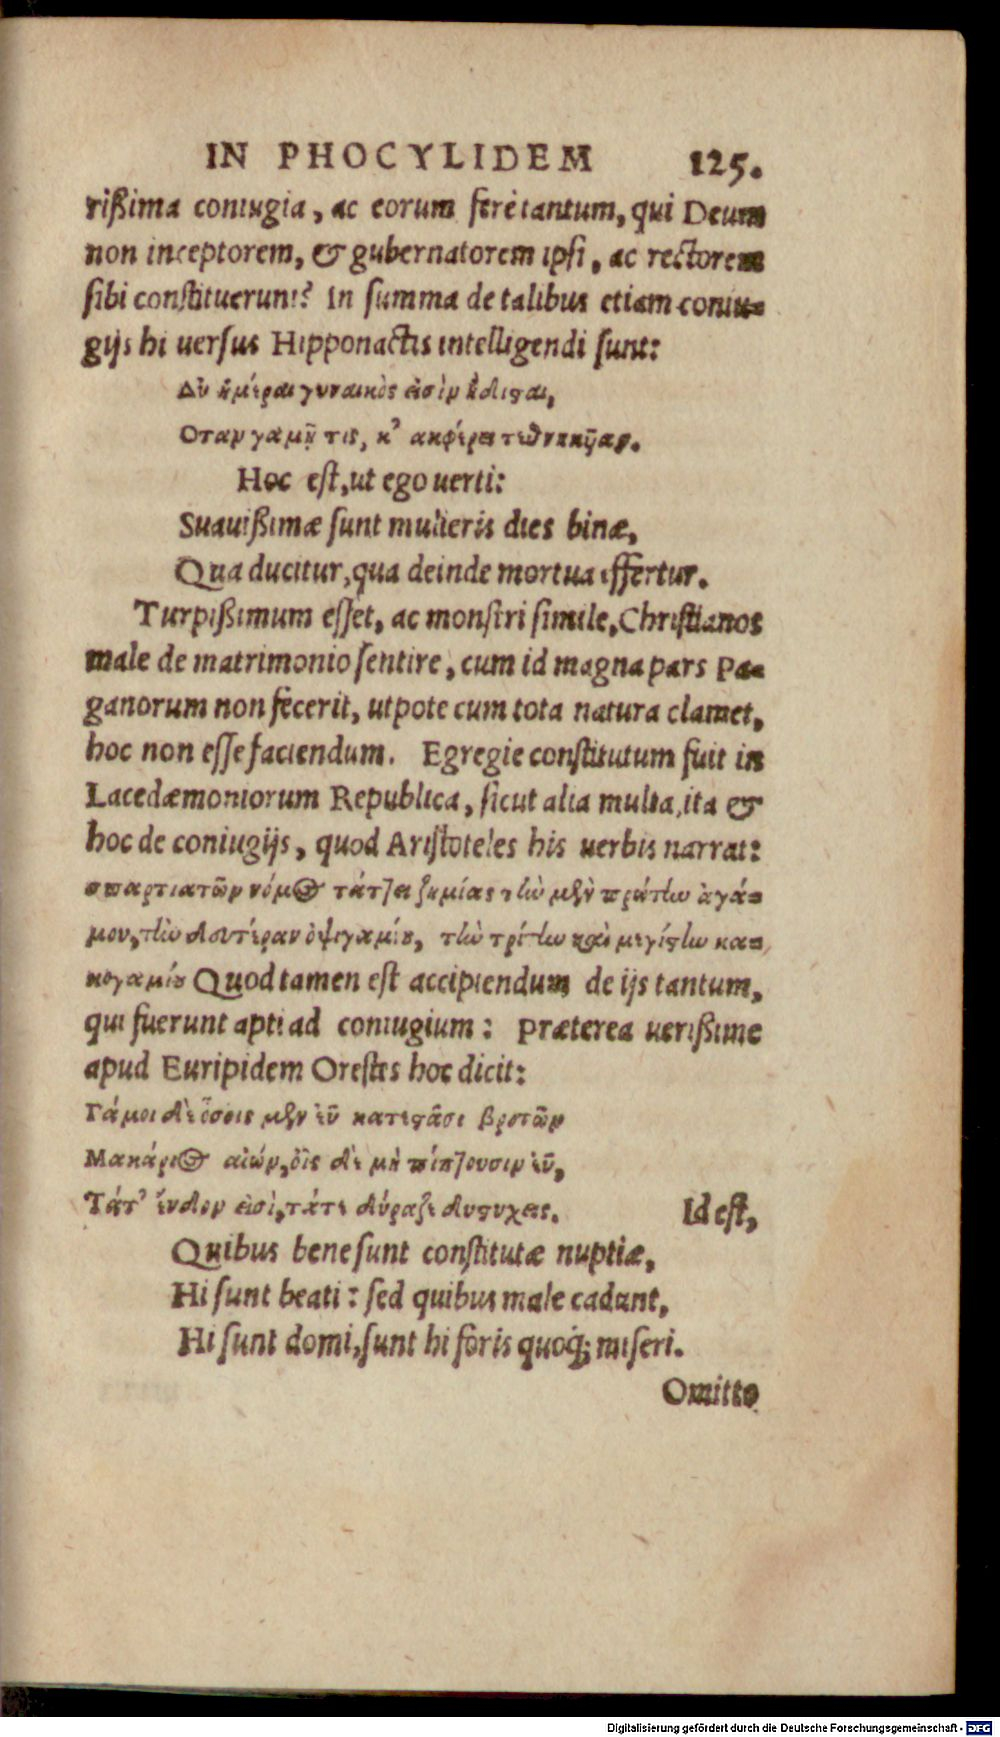 IN PHOCYLIDEM 125.
rißima coniugia, ac eorum ferè tantum, qui Deum
non inceptorem, & gubernatorem ipsi, ac rectorem
sibi constituerunt? In summa de talibus etiam coniu-
gijs hi uersus Hipponactis intelligendi sunt:
Δύ ἡμέραι γυναικὸς εἰσὶν ἥδισται,
Οταν γαμῇ τις, κ' ακφέρει τεθνηκῦαν.
Hoc est, ut ego uerti:
Suauißimæ sunt mulieris dies binæ,
Qua ducitur, qua deinde mortua effertur.
Turpißimum esset, ac monstri simile, Christianos
male de matrimonio sentire, cum id magna pars Pa-
ganorum non fecerit, utpote cum tota natura clamet,
hoc non esse faciendum. Egregie constitutum fuit in
Lacedæmoniorum Republica, sicut alia multa, ita &
hoc de coniugijs, quod Aristoteles his uerbis narrat:
σπαρτιατῶν νόμος τάττει ζημίας, τὼ μὲν πρώτω ἀγά-
μου, τὼ δευτέραν ὀψιγαμίου, τὼ τρίτω καὶ μεγίστω κα-
κογαμίου Quod tamen est accipiendum de ijs tantum,
qui fuerunt apti ad coniugium: Præterea uerißime
apud Euripidem Orestes hoc dicit:
Γάμοι δὲ ὅσοις μὲν εὖ κατεστᾶσι βροτῶν
Μακάριος αἰών, οἷς δὲ μὴ πίπτουσιν εὖ,
Τάτ' ἔνδον εἰσὶ, τάτε θύραζε δυστυχεῖς. Id est,
Quibus bene sunt constitutæ nuptiæ,
Hi sunt beati: sed quibus male cadunt,
Hi sunt domi, sunt hi foris quoq; miseri.
Omitto
Digitalisierung gefördert durch die Deutsche Forschungsgemeinschaft - DFG